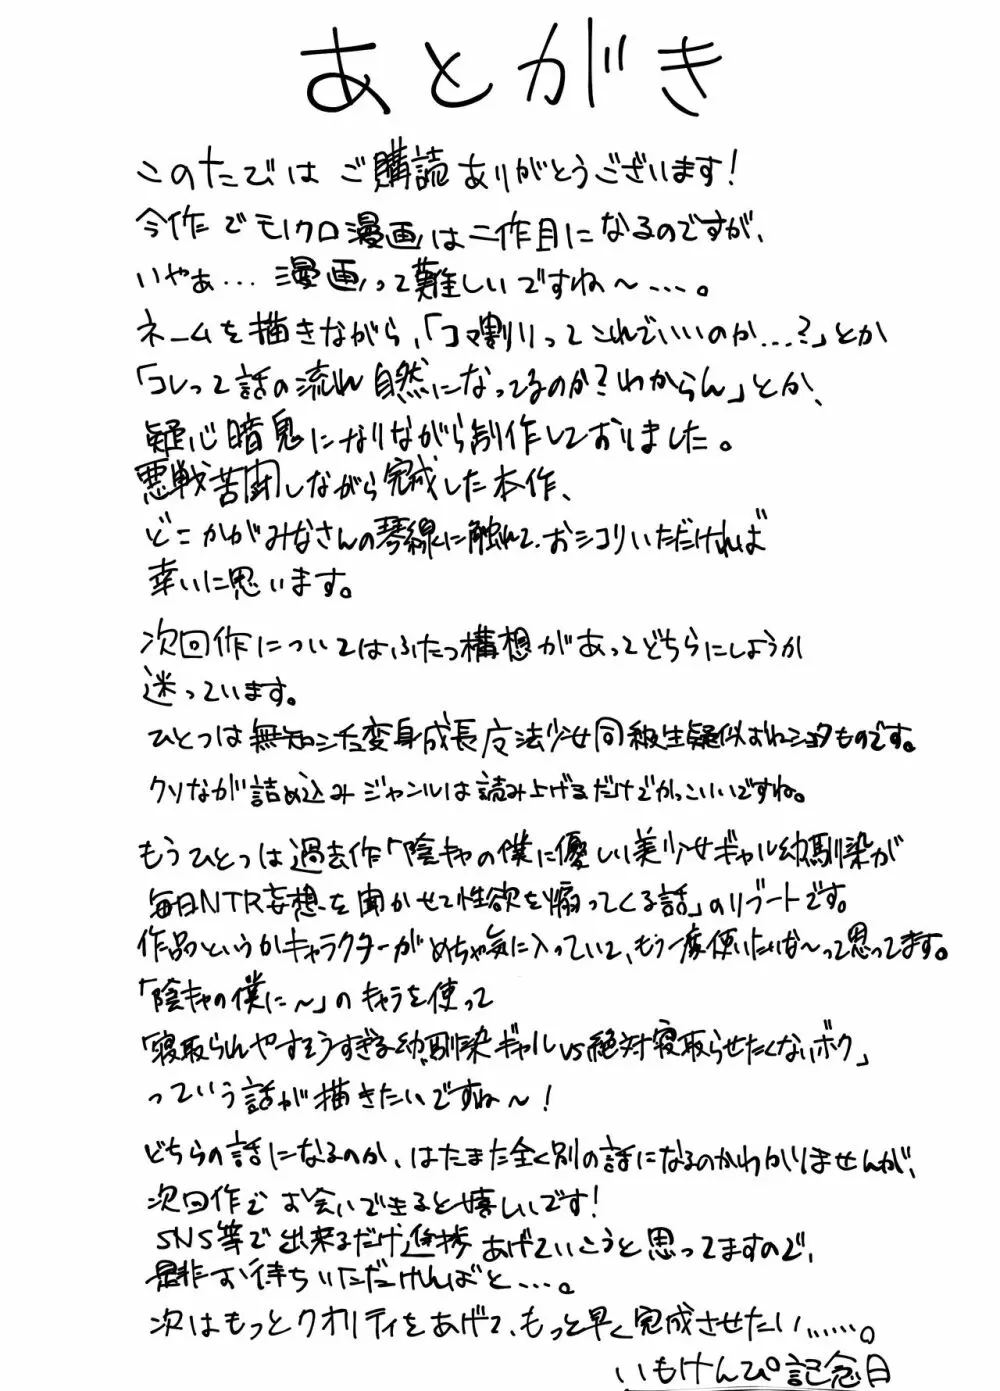 あとがき
このたびはご購読ありがとうございます!
今作でモノクロ漫画は二作目になるのですが、
いやぁ…漫画って難しいですね～…。
ネームを描きながら、「コマ割りってこれでいいのか…?」とか
「コレって話の流れ自然になってるのか?わからん」とか、
疑心暗鬼になりながら制作しておりました。
悪戦苦闘しながら完成した本作、
どこかがみなさんの琴線に触れて、おシコりいただければ
幸いに思います。
次回作についてはふたつ構想があってどちらにしようか
迷っています。
ひとつは無知シチュ変身成長魔法少女同級生疑似おねショタものです。
クソなが詰め込みジャンルは読み上げるだけでかっこいいですね。
もうひとつは過去作「陰キャの僕に優しい美少女ギャル幼馴染が
毎日NTR妄想を聞かせて性欲を煽ってくる話」のリブートです。
作品というかキャラクターがめちゃ気に入っていて、もう一度使いたいな～って思ってます。
「陰キャの僕に～」のキャラを使って
「寝取られやすそうすぎる幼馴染ギャルvs絶対寝取らせたくないボク」
っていう話が描きたいですね～!
どちらの話になるのか、はたまた全く別の話になるのかわかりませんが、
次回作でお会いできると嬉しいです!
SNS等で出来るだけ進捗あげていこうと思ってますので、
是非お待ちいただければと…。
次はもっとクオリティをあげて、もっと早く完成させたい……。
いもけんぴ記念日